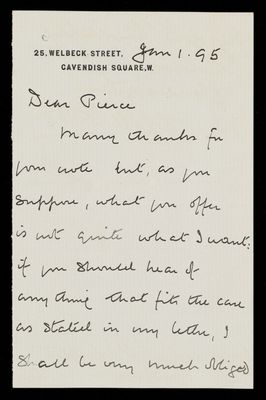 25, WELBECK STREET, Jan 1. 95
CAVENDISH SQUARE, W.
Dear Pierce
Many thanks for
your note but, as you
suppose, what you offer
is not quite what I want:
if you should hear of
any thing that fits the case
as stated in my letter, I
shall be very much obliged